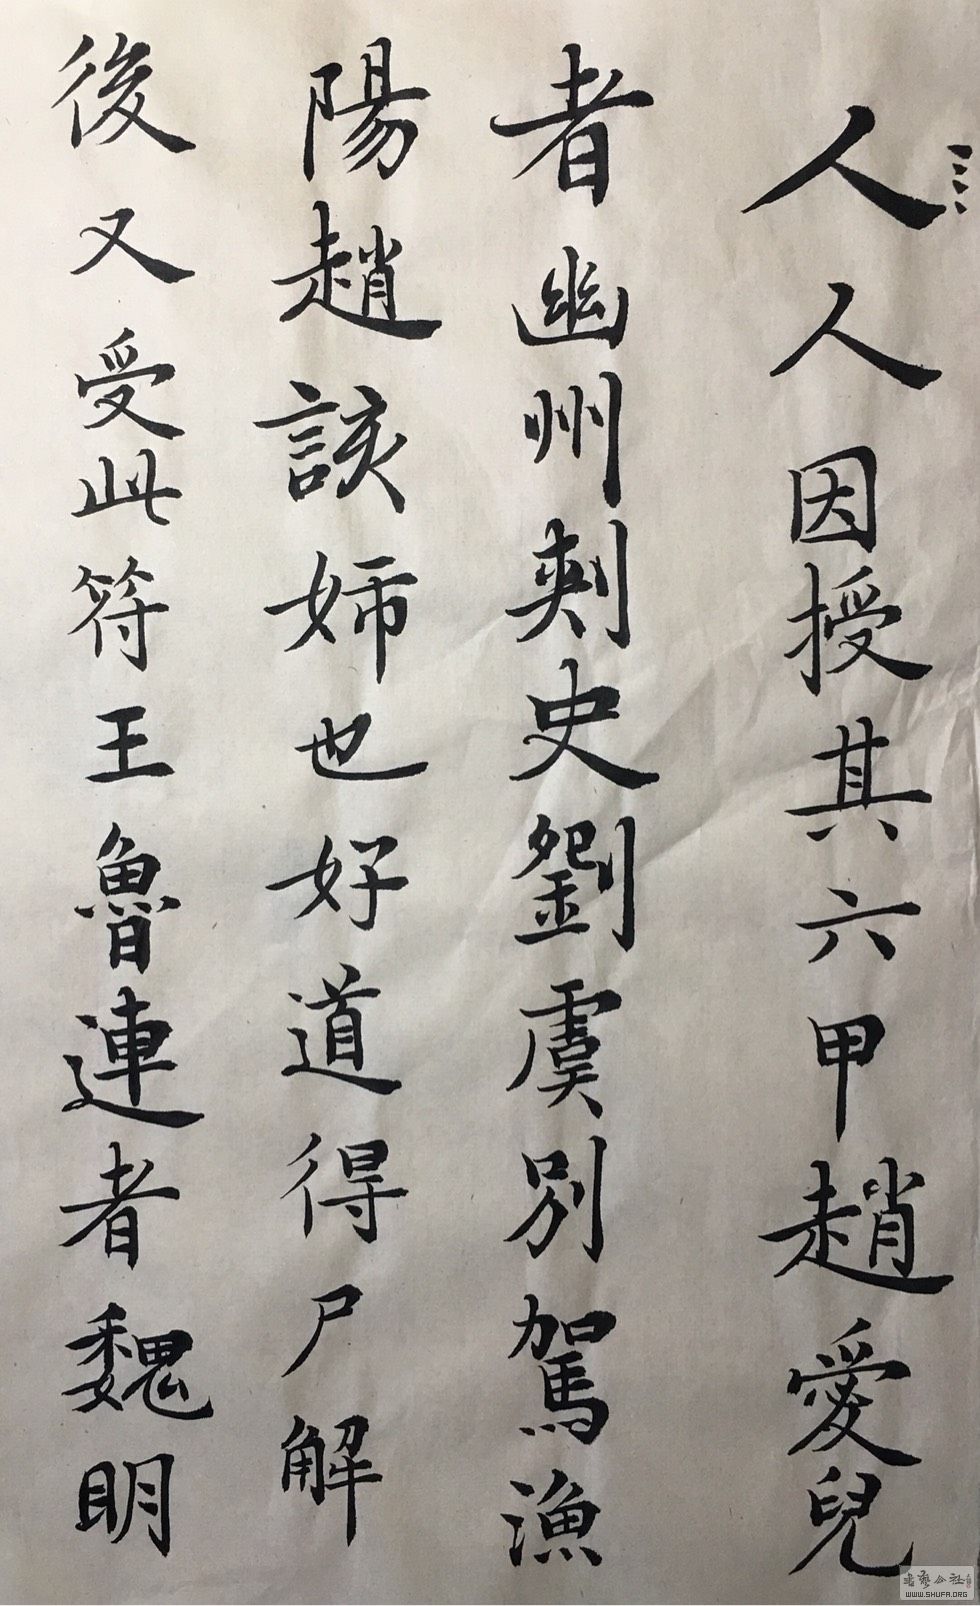 三
人人因授其六甲趙愛兒
者幽州刺史劉虞別駕漁
陽趙該姉也好道得尸解
後又受此符王魯連者魏明
WWW.SHUFA.ORG